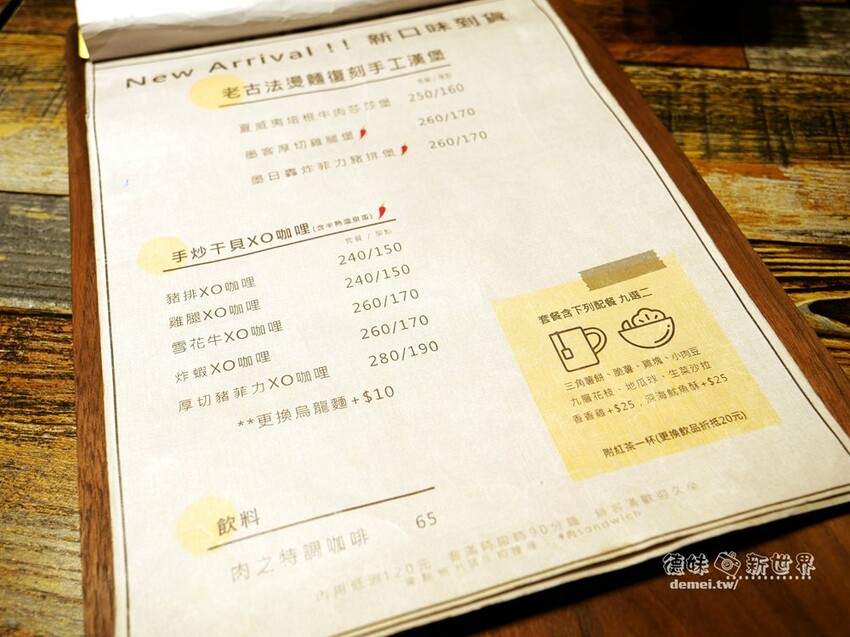 New Arrival !! 新口味到貨
老古法燙麵復刻手工漢堡
套餐 / 單點
夏威夷培根牛肉莎莎堡 250/160
墨客厚切雞腿堡 260/170
墨日轟炸菲力豬排堡 260/170
手炒干貝XO咖哩(含半熟溫泉蛋)
套餐 / 單點
豬排XO咖哩 240/150
雞腿XO咖哩 240/150
雪花牛XO咖哩 260/170
炸蝦XO咖哩 260/170
厚切豬菲力XO咖哩 280/190
**更換烏龍麵+$10
套餐含下列配餐 九選二
三角薯餅、脆薯、雞塊、小肉豆
九層花枝、地瓜球、生菜沙拉
香香雞+$25，深海魷魚酥+$25
附紅茶一杯(更換飲品折抵20元)
飲料
肉之特調咖啡 65
內用低消120元 客滿時限時90分鐘
sandwich
德味 新世界
demei.tw/